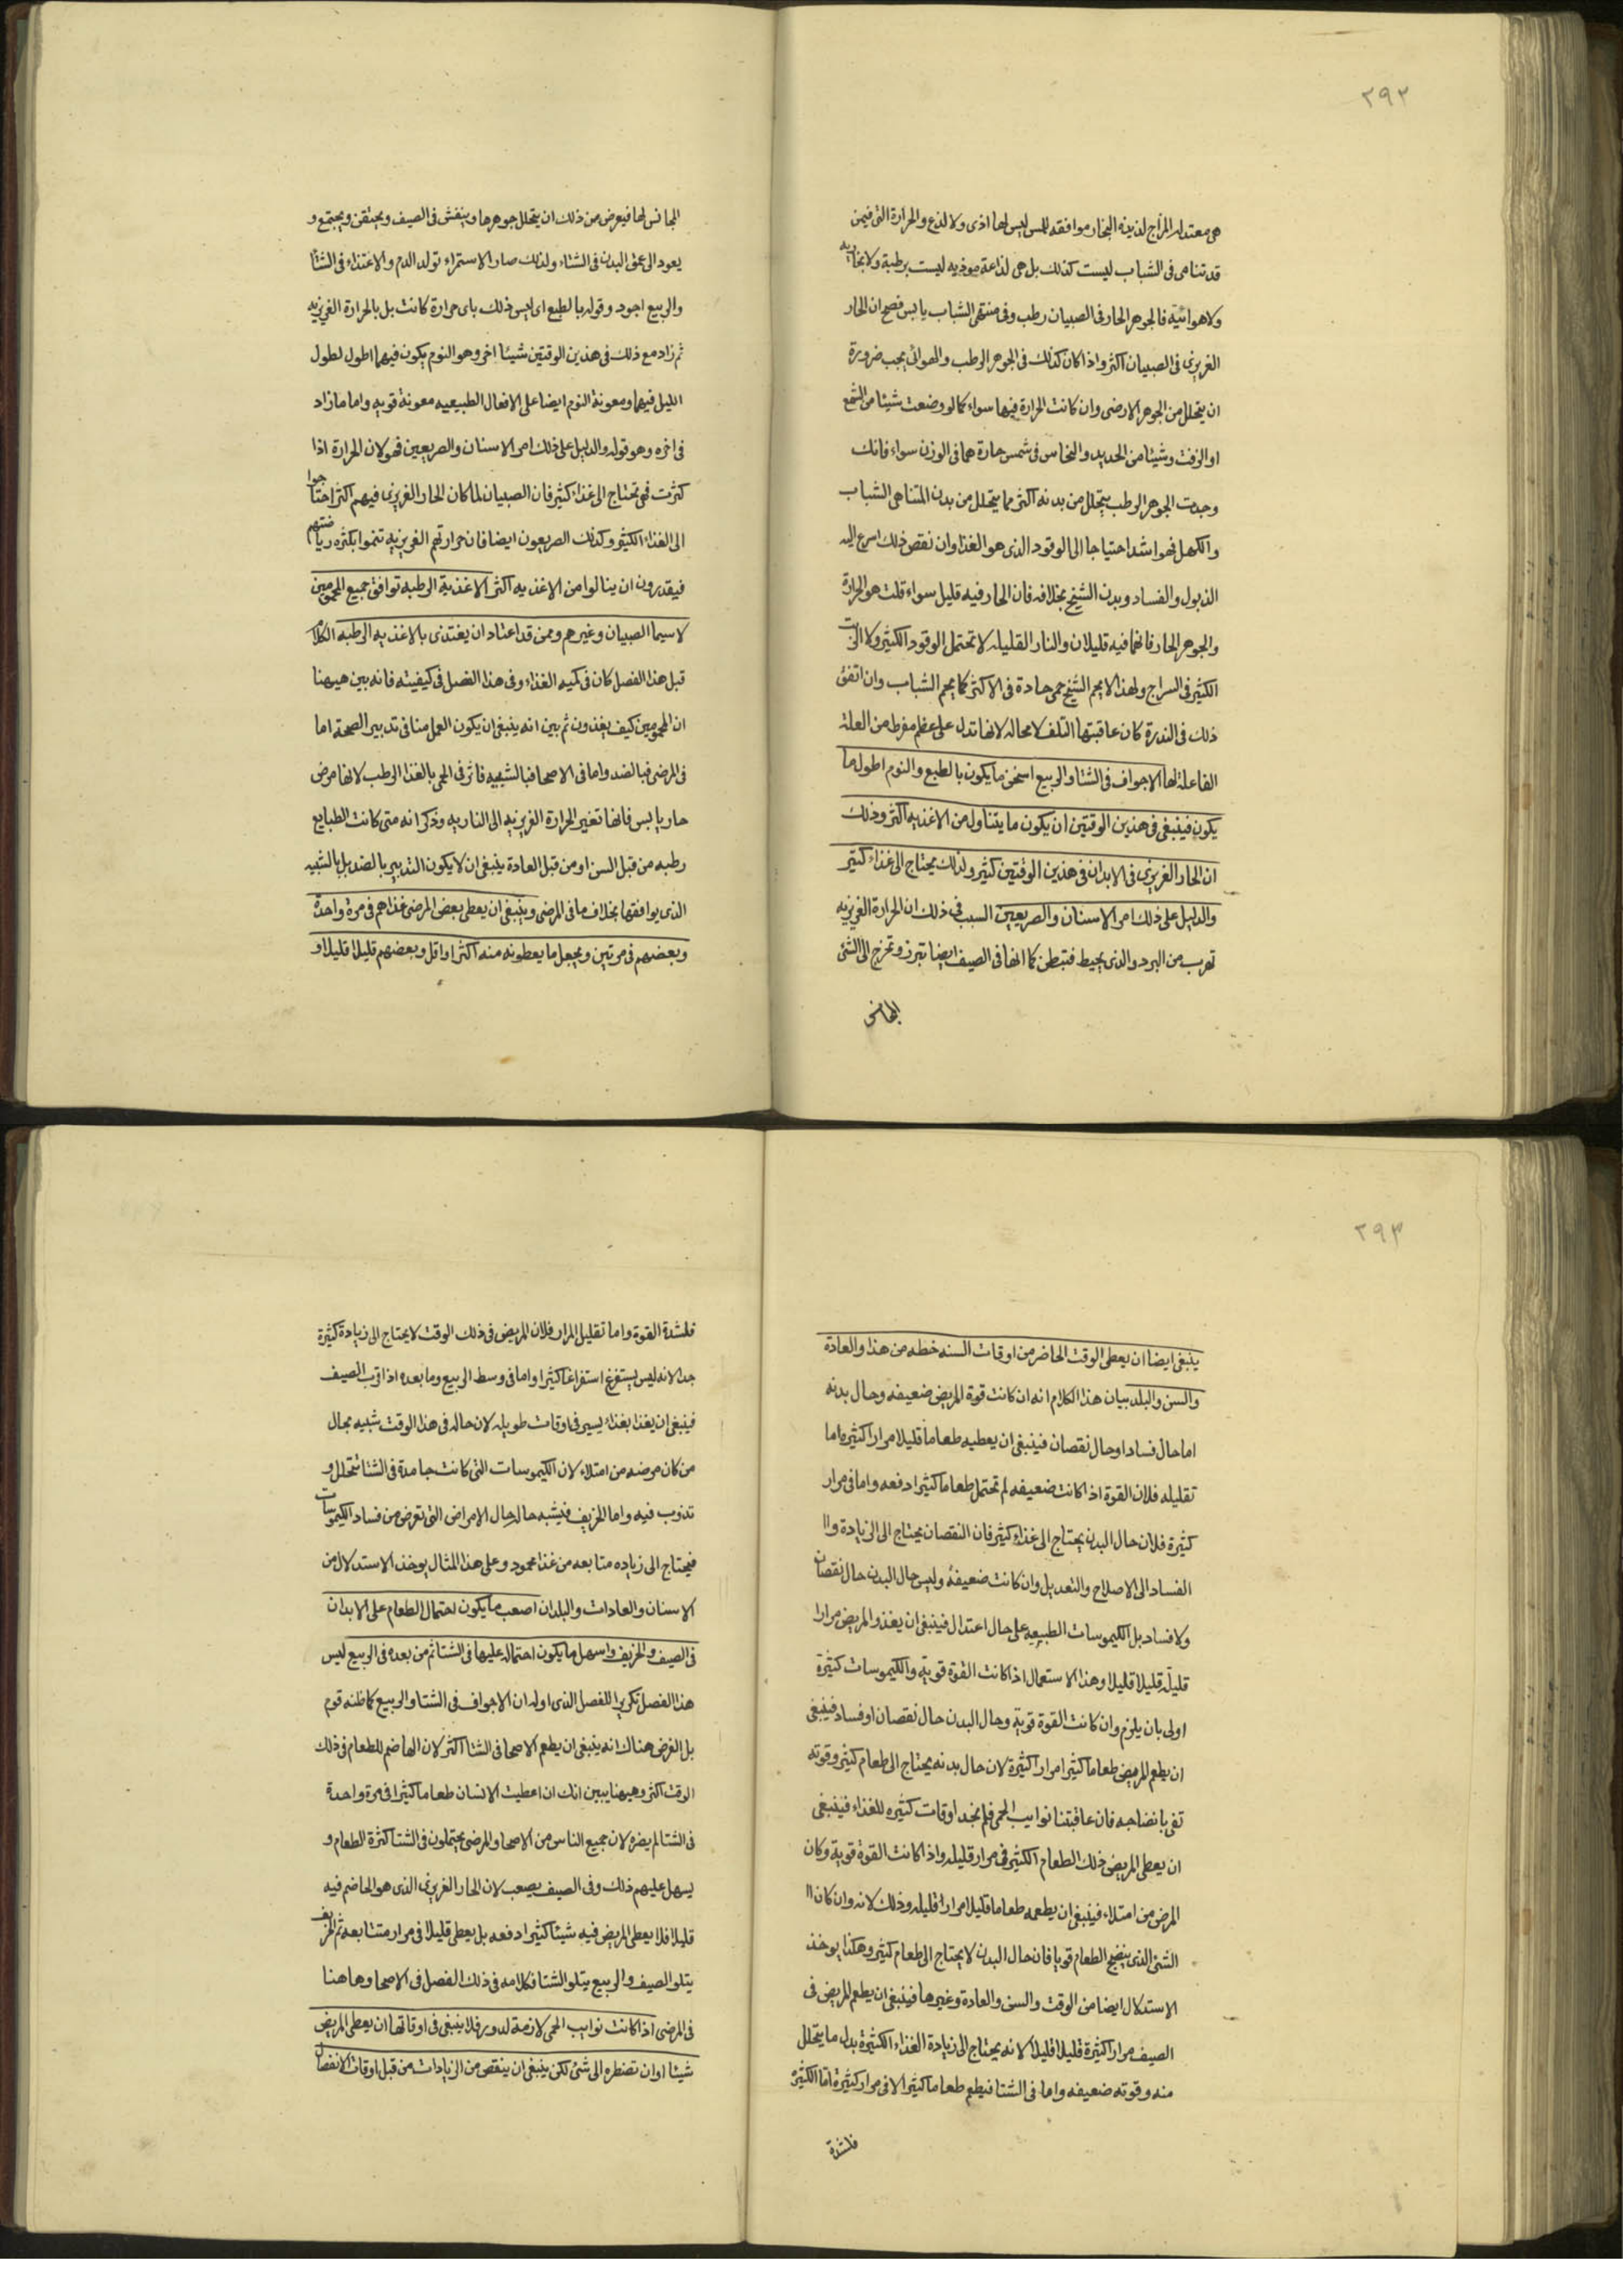 ٢٩٢
هى معتدله المزاج لذيذة البخار موافقه للمس ليس لها اذى ولا لذع والحرارة التى فيمن
قد تناهى فى الشباب ليست كذلك بل هى لذاعة موذيه ليست برطبة ولا بخاريه
ولا هوائية فالجوهر الحار فى الصبيان رطب وفى منتهى الشباب يابس فصح ان الحار
الغريزى فى الصبيان اكثر واذا كان كذلك فى الجوهر الرطب والهوائى يجب ضرورة
ان يتحلل من الجوهر الارضى وان كانت الحرارة فيها سواء كما لو وضعت شيئا من الشمع
او الزفت وشيئا من الحديد والنحاس فى شمس حارة هما فى الوزن سواء فانك
وجدت الجوهر الرطب يتحلل من بدنه اكثر مما يتحلل من بدن المتناهى الشباب
والكهل فهو اشد احتياجا الى الوقود الذى هو الغذا وان نقص ذلك اسرع اليه
الذبول والفساد وبدن الشيخ بخلافه فان الحار فيه قليل سواء قلت هو الحرارة
والجوهر الحار فانهما فيه قليلان والنار القليله لا تحتمل الوقود الكثير ولا الزيت
الكثير فى السراج ولهذا لا يحم الشيخ حمى حادة فى الاكثر كما يحم الشباب وان اتفق
ذلك فى الندرة كان عاقبتها التلف لا محاله لانها تدل على عظم مفرط من العلة
الفاعلة لها الاجواف فى الشتا والربيع اسخن ما يكون بالطبع والنوم اطول ما
يكون فينبغى فى هذين الوقتين ان يكون ما يتناول من الاغذيه اكثر وذلك
ان الحار الغريزى فى الابدان فى هذين الوقتين كثير ولذلك يحتاج الى غذاء كثير
والدليل على ذلك امر الاسنان والصريعين السبب فى ذلك ان الحرارة الغريزيه
تهرب من البرد والذى يحيط فتبطن كما انها فى الصيف ايضا تبرز وتخرج الى الشئ
المجانس
المجانس لها فيعرض من ذلك ان يتحلل جوهرها وينفش فى الصيف ويحتقن ويجتمع و
يعود الى عمق البدن فى الشتاء ولذلك صار الاستمراء تولد الدم والاغتذاء فى الشتا
والربيع اجود وقوله بالطبع اى ليس ذلك باى حرارة كانت بل بالحرارة الغريزيه
ثم زاد مع ذلك فى هذين الوقتين شيئا اخر وهو النوم يكون فيهما اطول لطول
الليل فيهما ومعونة النوم ايضا على الافعال الطبيعيه معونة قويه واما ما زاد
فى اخره وهو قوله والدليل على ذلك امر الاسنان والصريعين فهو لان الحرارة اذا
كثرت فهى تحتاج الى غذاء كثير فان الصبيان لما كان الحار الغريزى فيهم اكثر احتاجوا
الى الغذاء الكثير وكذلك الصريعون ايضا فان حرارتهم الغريزيه تنموا بكثره رياضتهم
فيقدرون ان ينالوا من الاغذيه اكثر الاغذية الرطبه توافق جميع المحمومين
لا سيما الصبيان وغيرهم وممن قد اعتاد ان يغتذى بالاغذيه الرطبه الكلام
قبل هذا الفصل كان فى كميه الغذاء وفى هذا الفصل فى كيفيته فانه بين هيهنا
ان المحمومين كيف يغذون ثم بين انه ينبغى ان يكون العمل منا فى تدبير الصحة اما
فى المرضى فبالضد واما فى الاصحا فبالشبيه فاثر فى الحمى بالغذا الرطب لانها مرض
حار يابس فانها تغير الحرارة الغريزيه الى الناريه وذكر انه متى كانت الطبايع
رطبه من قبل السن او من قبل العادة ينبغى ان لا يكون التدبير بالضد بل بالشبيه
الذى يوافقها بخلاف ما فى المرضى وينبغى ان يعطى بعض المرضى غذاهم فى مرة واحدة
وبعضهم فى مرتين ويجعل ما يعطونه منه اكثر او اقل وبعضهم قليلا قليلا و
٢٩٣
ينبغى ايضا ان يعطى الوقت الحاضر من اوقات السنه خطه من هذا والعادة
والسن والبلد بيان هذا الكلام انه ان كانت قوة المريض ضعيفه وحال بدنه
اما حال فساد او حال نقصان فينبغى ان يعطيه طعاما قليلا مرارا كثيره اما
تقليله فلان القوة اذا كانت ضعيفه لم تحتمل طعاما كثيرا دفعه واما فى مرار
كثيرة فلان حال البدن يحتاج الى غذاء كثير فان النقصان يحتاج الى الزيادة وا
الفساد الى الاصلاح والتعديل وان كانت ضعيفة وليس حال البدن حال نقصان
ولا فساد بل الكيموسات الطبيعيه على حال اعتدال فينبغى ان يغذو المريض مرارا
قليلة قليلا قليلا وهذا الاستعمال اذا كانت القوة قوية والكيموسات كثيرة
اولى بان يلزم وان كانت القوة قوية وحال البدن حال نقصان او فساد فينبغى
ان يطعم المريض طعاما كثيرا مرارا كثيرة لان حال بدنه يحتاج الى طعام كثير وقوته
تفى بانضاجه فان عاقبتنا نوايب الحمى فلم نجد اوقات كثيره للغذاء فينبغى
ان يعطى المريض ذلك الطعام الكثير فى مرار قليله واذا كانت القوة قوية وكان
المرض من امتلاء فينبغى ان يطعمه طعاما قليلا مرارا قليله وذلك لانه وان كان ا
الشئ الذى ينضج الطعام قويا فان حال البدن لا يحتاج الى طعام كثير وهكذا يوخذ
الاستدلال ايضا من الوقت والسن والعادة وغيرها فينبغى ان يطعم المريض فى
الصيف مرارا كثيرة قليلا قليلا لانه يحتاج الى زيادة الغذاء الكثيرة بدل ما يتحلل
منه وقوته ضعيفه واما فى الشتا فيطعم طعاما كثيرا لا فى مرار كثيرة اما الكثير
فلشدة
فلشدة القوة واما تقليل المرار فلان المريض فى ذلك الوقت لا يحتاج الى زيادة كثيرة
جدا لانه ليس يستفرغ استفراغا كثيرا واما فى وسط الربيع وما بعده اذا قرب الصيف
فينبغى ان يغذا بغذاء يسير فى اوقات طويله لان حاله فى هذا الوقت شبيه بحال
من كان مرضه من امتلاء لان الكيموسات التى كانت جامدة فى الشتا تتحلل و
تذوب فيه واما الخريف فيشبه حاله حال الامراض التى تعرض من فساد الكيموسات
فيحتاج الى زياده متابعه من غذا محمود وعلى هذا المثال يوخذ الاستدلال من
الاسنان والعادات والبلدان اصعب ما يكون احتمال الطعام على الابدان
فى الصيف والخريف واسهل ما يكون احتماله عليها فى الشتا ثم من بعده فى الربيع ليس
هذا الفصل تكريرا للفصل الذى اوله ان الاجواف فى الشتا والربيع كما ظنه قوم
بل الغرض هناك انه ينبغى ان يطعم الاصحا فى الشتا اكثر لان الهاضم للطعام فى ذلك
الوقت اكثر وهيهنا يبين انك ان اعطيت الانسان طعاما كثيرا فى مرة واحدة
فى الشتا لم يضره لان جميع الناس من الاصحا والمرضى يحتملون فى الشتا كثرة الطعام و
يسهل عليهم ذلك وفى الصيف يصعب لان الحار الغريزى الذى هو الهاضم فيه
قليلا فلا يعطى المريض فيه شيئا كثيرا دفعه بل يعطى قليلا فى مرار متتابعه ثم الخريف
يتلو الصيف والربيع يتلو الشتا فكلامه فى ذلك الفصل فى الاصحا وهاهنا
فى المرضى اذا كانت نوايب الحمى لازمة لدور فلا ينبغى فى اوقاتها ان يعطى المريض
شيئا او ان تضطره الى شئ لكن ينبغى ان ينقص من الزيادات من قبل اوقات الانفصال